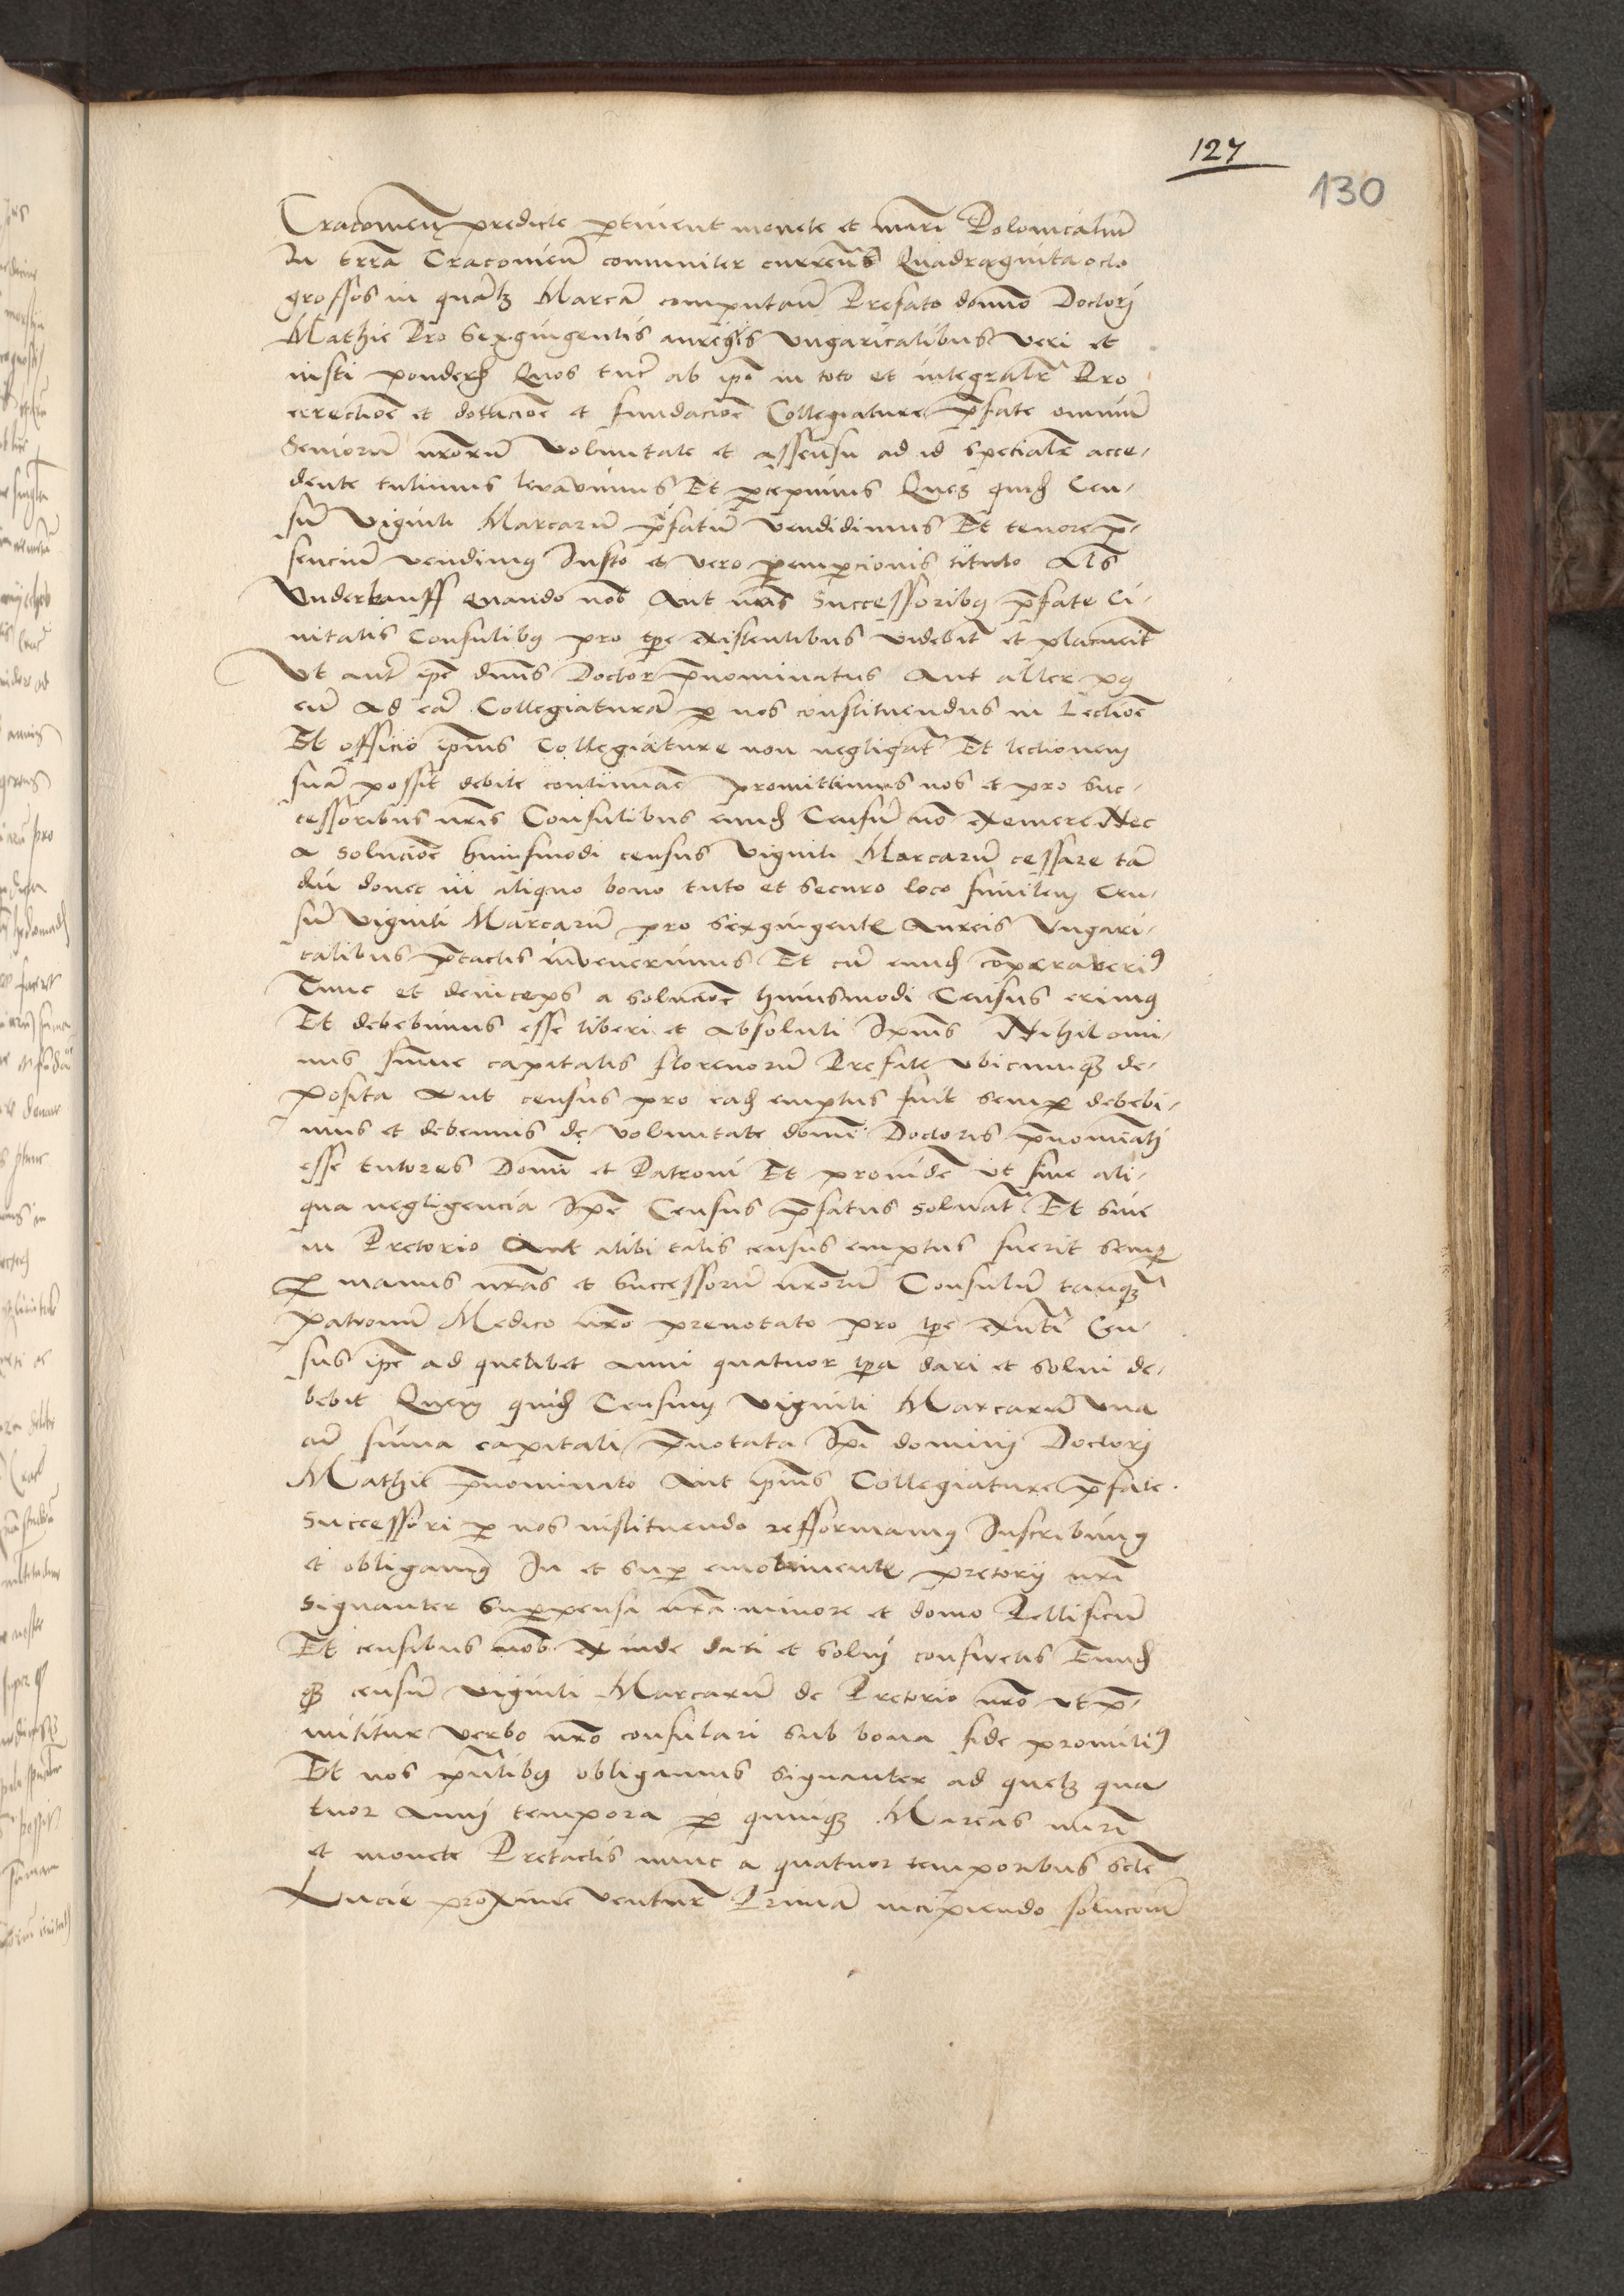 127
130
Cracovien̄ predicte ꝑtinent monete et nūri Polonicaliū
In terra Cracovien̄ com̄uniter curren̄s Quadraginta octo
grossos in quālꝫ Marcā computan̄ Prefato domno Doctorj
Mathie Pro Sexgingentis aureis vngaricalibus veri et
iusti ponderis Quos tūc ab ip̄o in toto et integralr̄ Pro
errectiōe et dotaciōe et fundaciōe Collegiature p̄fate omniū
Seniorū nr̄orū Voluntate et assensu ad id specialr̄ acce-
dente tulimus levavimus Et ꝑcepimus Quē quidē Cen-
sū Viginti Marcarū p̄fatū vendidimus Et tenore p̄-
senciū vendimꝰ Iusto et vero empcionis titulo Als
Vnderkauff quando nob̄ Aut nr̄is Successoribꝰ p̄fate Ci-
uitatis Consulibꝰ pro tp̄e existentibus videbit̄ et placuerit
Vt aut̄ ip̄e dn̄us Doctor p̄nominatus Aut alter pꝰ
eū Ad eā Collegiaturā ꝑ nos constituendus in Lectiōe
Et officio ip̄ius Collegiature non negligat̄ Et lectionem
suā possit debite continuare promittimus nos et pro suc-
cessoribus nr̄is Consulibus eundē Censū nō exemere Nec
a soluciōe huiusmodi census Viginti Marcarū cessare tā
diu donec in aliquo bono tuto et securo loco similem Cen-
sū Viginti Marcarū pro sexgingentis Aureis Vngari-
calibus p̄tactis invenerimus Et cū eundē cōparaverimꝰ
Tunc et deinceps a soluciōe huiusmodi Census erimꝰ
Et debebimus esse liberi et Absoluti Ip̄ius Nihilomi-
nus sūme capitalis florenorū Prefate vbicumqꝫ de-
posita Aut census pro eadē emptus fuit semꝑ debebi-
mus et debemus de voluntate domi Doctoris p̄nominati
esse tutores Domi et Patroni Et providere ut sine ali-
qua negligencia Ip̄e Census p̄fatus soluat̄ Et siue
in Pretorio Aut alibi talis census emptus fuerit semꝑ
ꝑ manus nr̄as et successorū nr̄orū Consulū tanqꝫ
patronū Medico nr̄o prenotato pro tp̄e exn̄ti Cen-
sus ip̄e ad quelibet Anni quatuor tp̄a dari et solui de-
bebit Quem quidē Censum viginti Marcarū vna
cū sūma capitali p̄notata Ip̄i dominj Doctorj
Mathie p̄nominato Aut ip̄ius Collegiature p̄fate
Successori ꝑ nos instituendo refformamꝰ Inscribimꝰ
et obligamꝰ In et suꝑ emolimentis pretorij nr̄i
Signanter suꝑ pensa nr̄a minore et domo Pellificū
Et censibus nob̄ exinde dari et soluj consuetis Eundē
qꝫ censū viginti Marcarū de Pretorio nr̄o ut p̄-
mititur verbo nr̄o consulari sub bona fide promitimꝰ
Et nos pn̄tibꝰ obligamus signanter ad quelꝫ qua
tuor Annj tempora ꝑ quinqꝫ Marcas nūri
et monete Pretactis nunc a quatuor temporibus scte
Lucie proxime ventur̄ Primā incipiendo solucōem̄